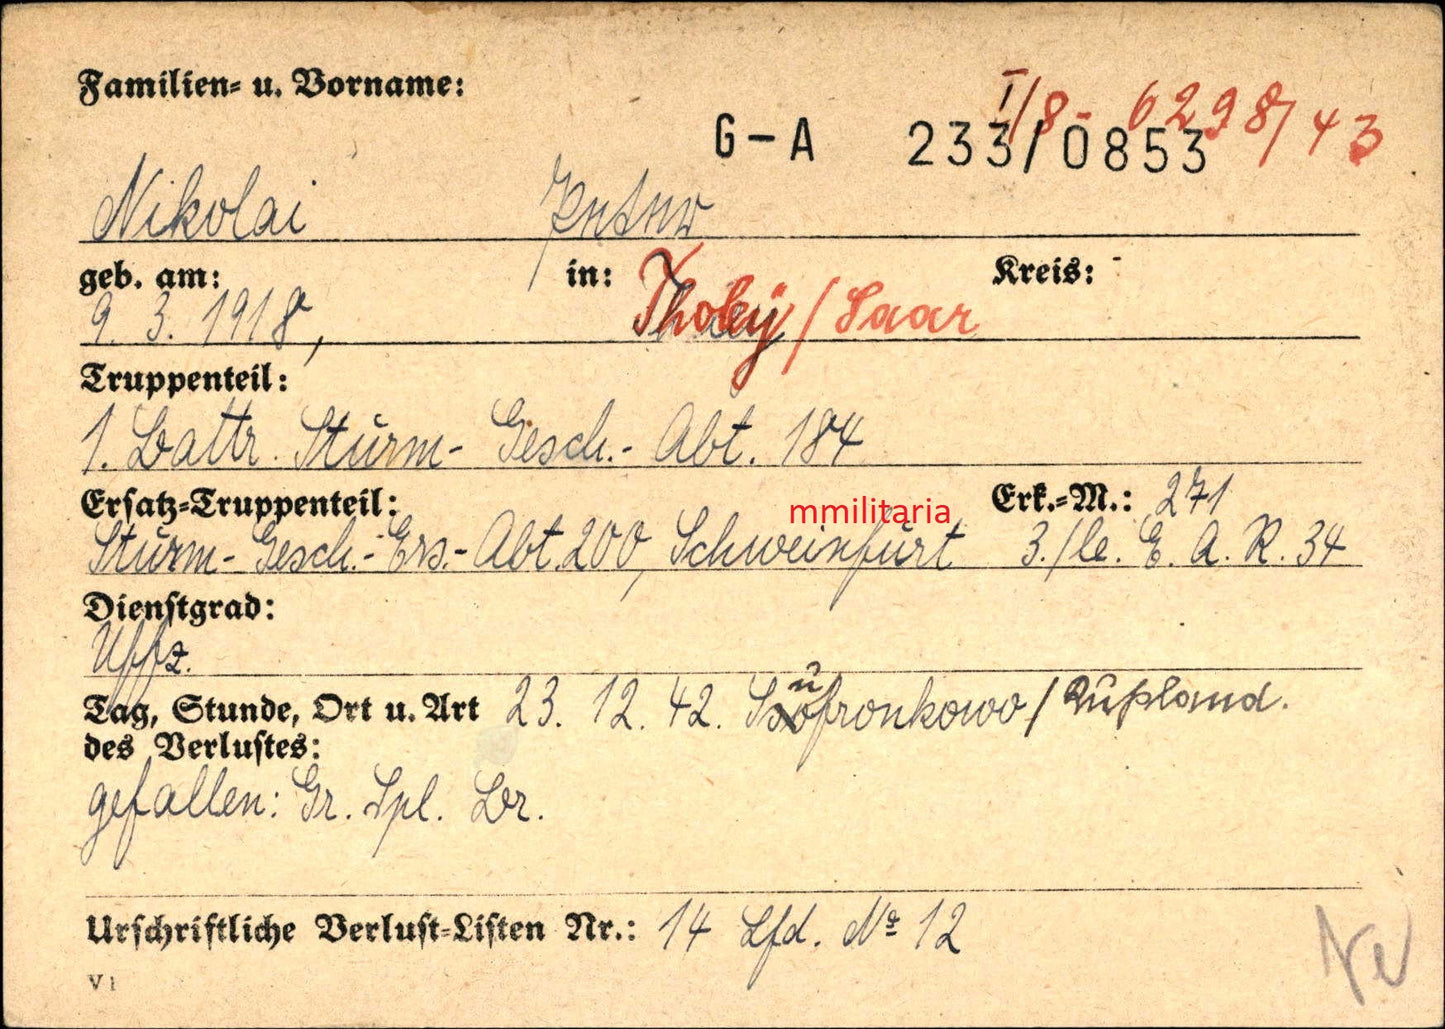 Familien- u. Vorname:
I/8- 6298/43
G-A 233/0853
Nikolai Peter
geb. am: in: Kreis:
9. 3. 1918, Tholey / Saar
Truppenteil:
1. Battr. Sturm- Gesch.- Abt. 184
Ersatz-Truppenteil: mmilitaria Erk.-M.: 271
Sturm-Gesch.-Ers.-Abt. 200, Schweinfurt 3./le. E. A. R. 34
Dienstgrad:
Uffz.
Tag, Stunde, Ort u. Art 23. 12. 42. Ssufronkowo / Rußland.
des Verlustes:
gefallen: Gr. Spl. Br.
Urschriftliche Verlust-Listen Nr.: 14 Lfd. No 12
V 1